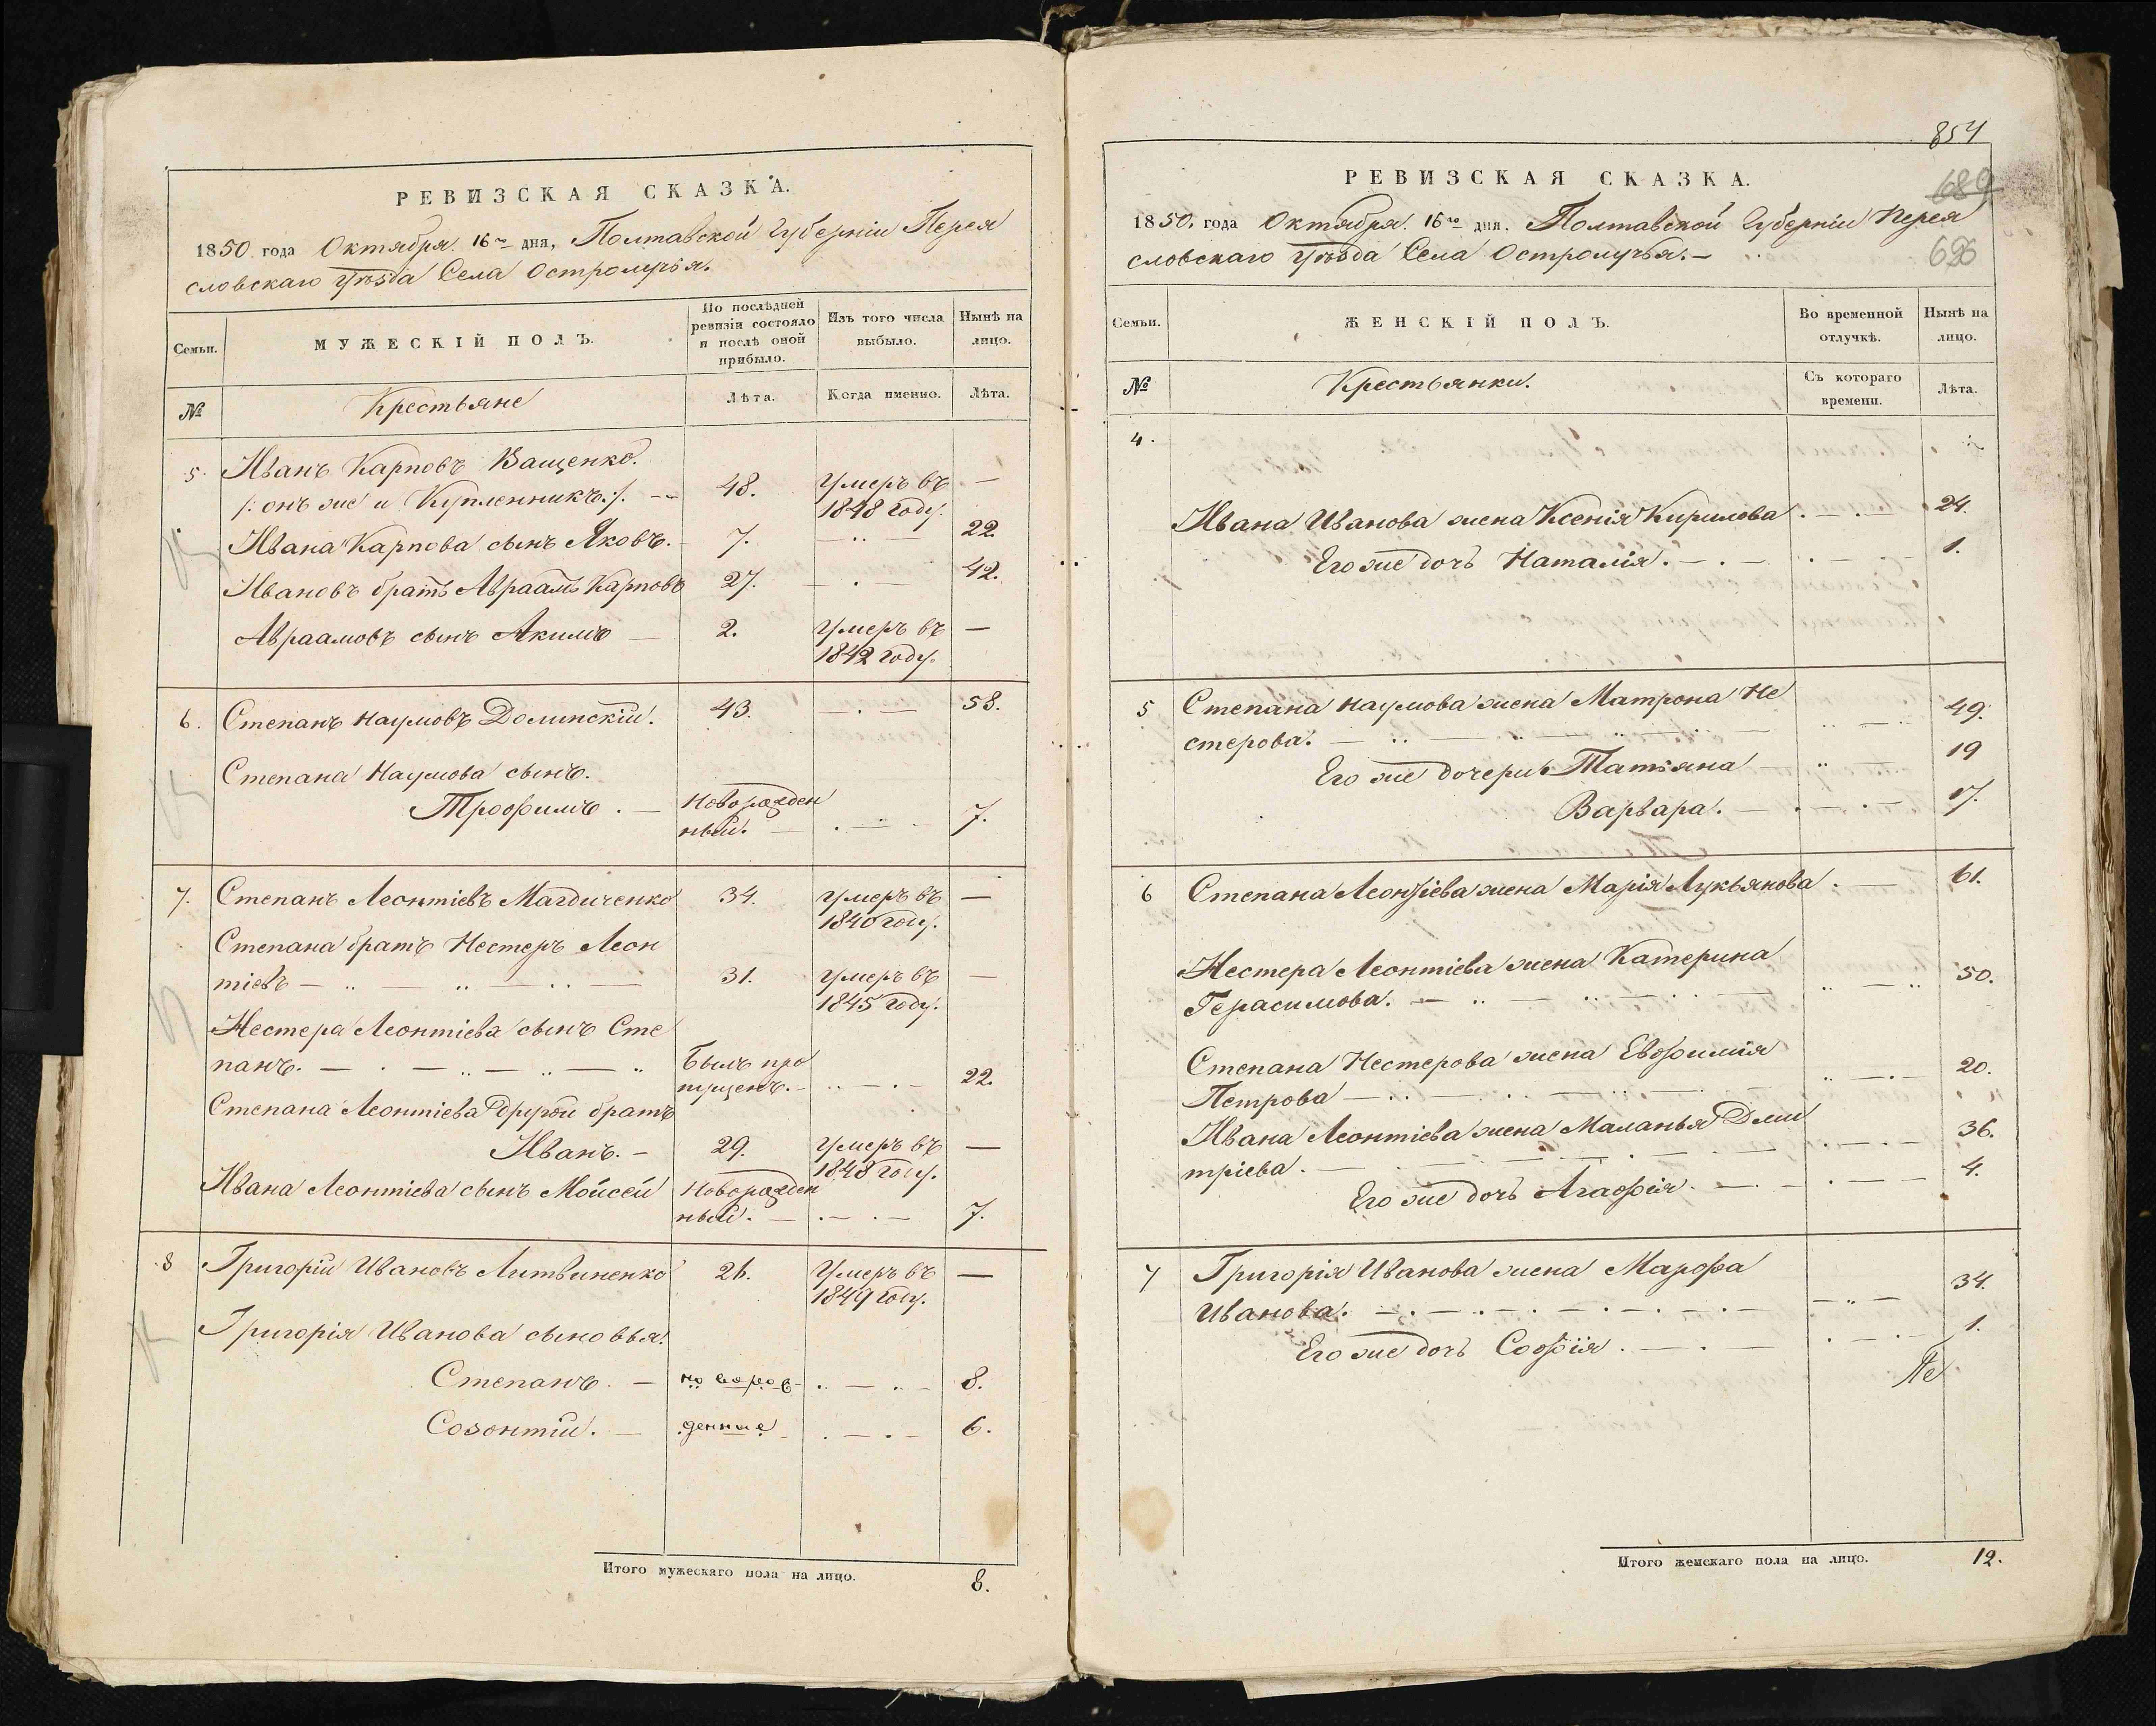 РЕВИЗСКАЯ СКАЗКА.
1850 года Октября 16го дня, Полтавской Губерніи Перея
словскаго Уѣзда Села Остролучья.
Семьи.
МУЖЕСКІЙ ПОЛЪ.
По послѣдней
ревизіи состояло
и послѣ оной
прибыло.
Изъ того числа
выбыло.
Нынѣ на
лицо.
№
Крестьяне
Лѣта.
Когда именно.
Лѣта.
5. Иванъ Карповъ Ващенко.
/: онъ же и Купленникъ :/. 48. Умеръ въ —
1848 году.
Ивана Карпова сынъ Яковъ. 7. 22.
Ивановъ братъ Авраамъ Карповъ 27. 42.
Авраамовъ сынъ Акимъ — 2. Умеръ въ —
1842 году.
6. Степанъ Наумовъ Долинскій. 43. 58.
Степана Наумова сынъ.
Трофимъ. — Новорожден
ный. — 7.
7. Степанъ Леонтіевъ Магдиченко 34. Умеръ въ —
1840 году.
Степана братъ Нестеръ Леон
тіевъ — 31. Умеръ въ —
1845 году.
Нестера Леонтіева сынъ Сте
панъ. — Былъ про
пущенъ. — 22.
Степана Леонтіева другой братъ
Иванъ. — 29. Умеръ въ —
1848 году.
Ивана Леонтіева сынъ Мойсей Новорожден
ный. — 7.
8 Григорій Ивановъ Литвиненко 26. Умеръ въ —
1849 году.
Григорія Иванова сыновья.
Степанъ. — новорож- 8.
Созонтій. — денные 6.
Итого мужескаго пола на лицо. 8.
854
689
РЕВИЗСКАЯ СКАЗКА.
1850. года Октября 16го дня. Полтавской Губерніи Перея
словскаго Уѣзда Села Остролучья. —
Семьи.
ЖЕНСКІЙ ПОЛЪ.
Во временной
отлучкѣ.
Нынѣ на
лицо.
№
Крестьянки.
Съ котораго
времени.
Лѣта.
4.
Ивана Иванова жена Ксенія Кирилова 24.
Его же дочь Наталія. 1.
5 Степана Наумова жена Матрона Не
стерова. — 49.
Его же дочери Татьяна 19
Варвара. —
6 Степана Леонтіева жена Марія Лукьянова 61.
Нестера Леонтіева жена Катерина
Герасимова. — 50.
Степана Нестерова жена Евфимія
Петрова — 20.
Ивана Леонтіева жена Маланья Дми
тріева. — 36.
Его же дочь Агафія. 4.
7 Григорія Иванова жена Марфа
Иванова. — 34.
Его же дочь Софія. 1.
Итого женскаго пола на лицо. 12.